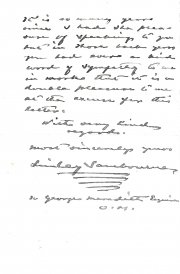 It is so many years
since I had the plea-
sure of speaking to you
but in those back years
you had ever a kind
word of sympathy to me
in work that it is a
double pleasure to me
as the excuse for this
letter.
With very kindest
regards.
most sincerely yours
Linley Sambourne
To George Meredith Esquire
O.M.